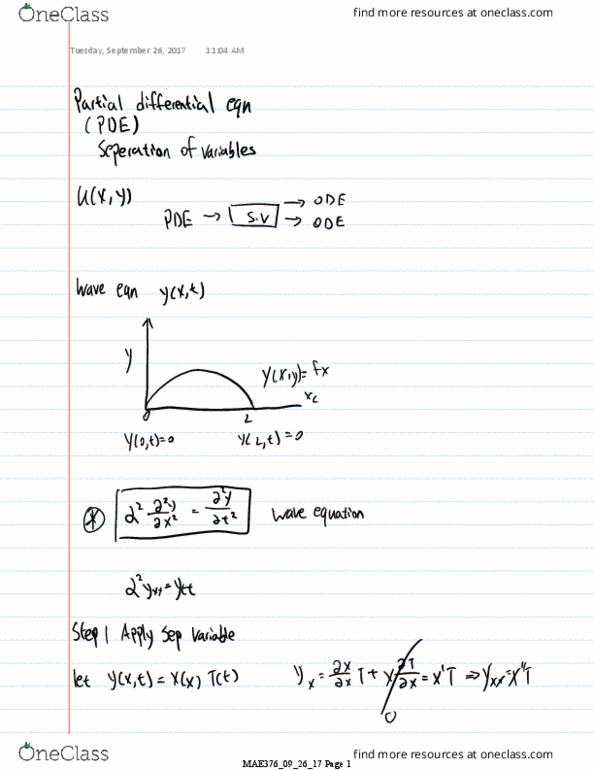 OneClass
find more resources at oneclass.com
Tuesday, September 26, 2017 11:04 AM
Partial differential eqn
(PDE)
Seperation of variables
U(x,y)
PDE → S.V → ODE
→ ODE
Wave eqn y(x,t)
y
y(x,y)=fx
x
0 L
y(0,t)=0 y(L,t)=0
* α² ∂²y/∂x² = ∂²y/∂t² Wave equation
α² yxx = ytt
Step 1 Apply Sep Variable
let y(x,t) = X(x) T(t) yx = ∂x/∂x T + X ∂T/∂x = X'T ⇒ yxx = X"T
0
OneClass
find more resources at oneclass.com
MAE376_09_26_17 Page 1